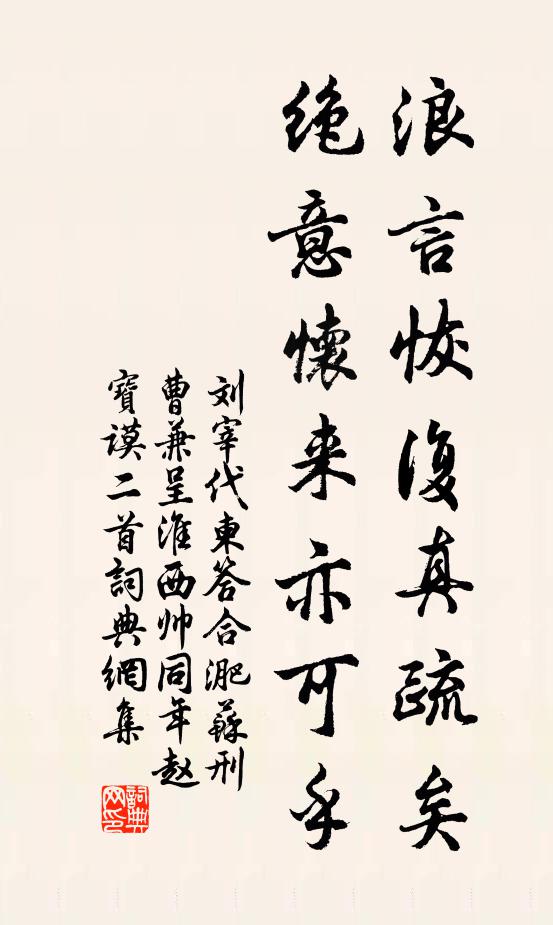 浪言恢復真疏矣
绝意懷来亦可乎
刘宰代柬答合淝蘇刑
曹兼呈淮西帅同年赵
寶謨二首詞典網集
詞典网印